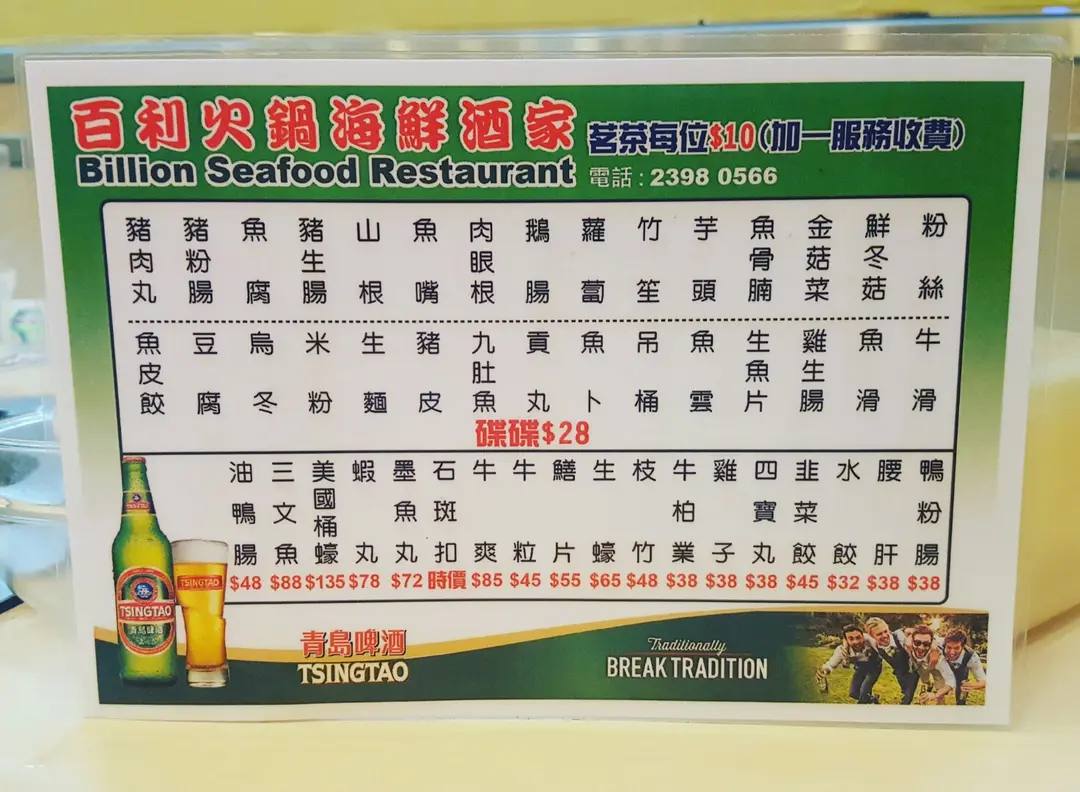 百利火鍋海鮮酒家
茗茶每位$10(加一服務收費)
Billion Seafood Restaurant
電話 : 2398 0566
豬肉丸
豬粉腸
魚腐
豬生腸
山根
魚嘴
肉眼根
鵝腸
蘿蔔
竹笙
芋頭
魚骨腩
金菇菜
鮮冬菇
粉絲
魚皮餃
豆腐
烏冬
米粉
生麵
豬皮
九肚魚
貢丸
魚卜
吊桶
魚雲
生魚片
雞生腸
魚滑
牛滑
碟碟$28
油鴨腸 $48
三文魚 $88
美國桶蠔 $135
蝦丸 $78
墨魚丸 $72
石斑扣 時價
牛爽 $85
牛粒 $45
鱔片 $55
生蠔 $65
枝竹 $48
牛柏業 $38
雞子 $38
四寶丸 $38
韭菜餃 $45
水餃 $32
腰肝 $38
鴨粉腸 $38
TSINGTAO
TSINGTAO
青島啤酒
青島啤酒
TSINGTAO
Traditionally
BREAK TRADITION